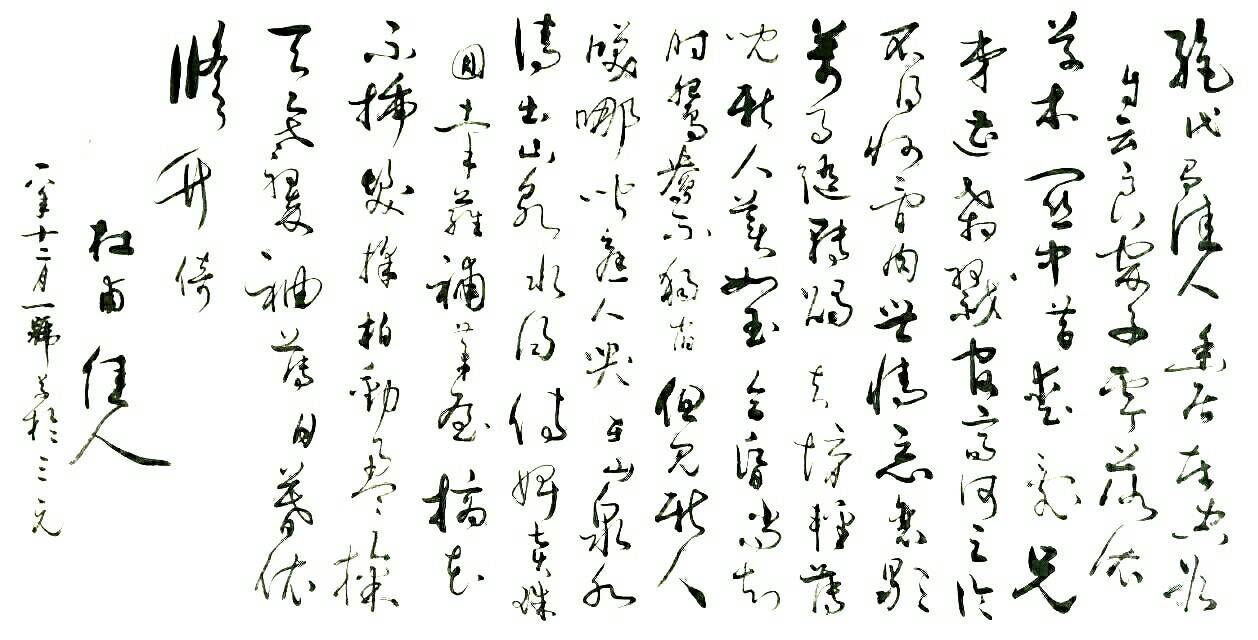 絕代有佳人幽居在空谷
自云良家子零落依
草木關中昔喪亂兄
弟遭殺戮官高何足論
不得收骨肉世情惡衰歇
萬事隨轉燭夫婿輕薄
兒新人美如玉合昏尚知
時鴛鴦不獨宿但見新人
笑哪聞舊人哭在山泉水
清出山泉水濁侍婢賣珠
回牽蘿補茅屋摘花
不插髮採柏動盈掬
天寒翠袖薄日暮依
修竹倚
杜甫 佳人
一八年十二月一號書於三元